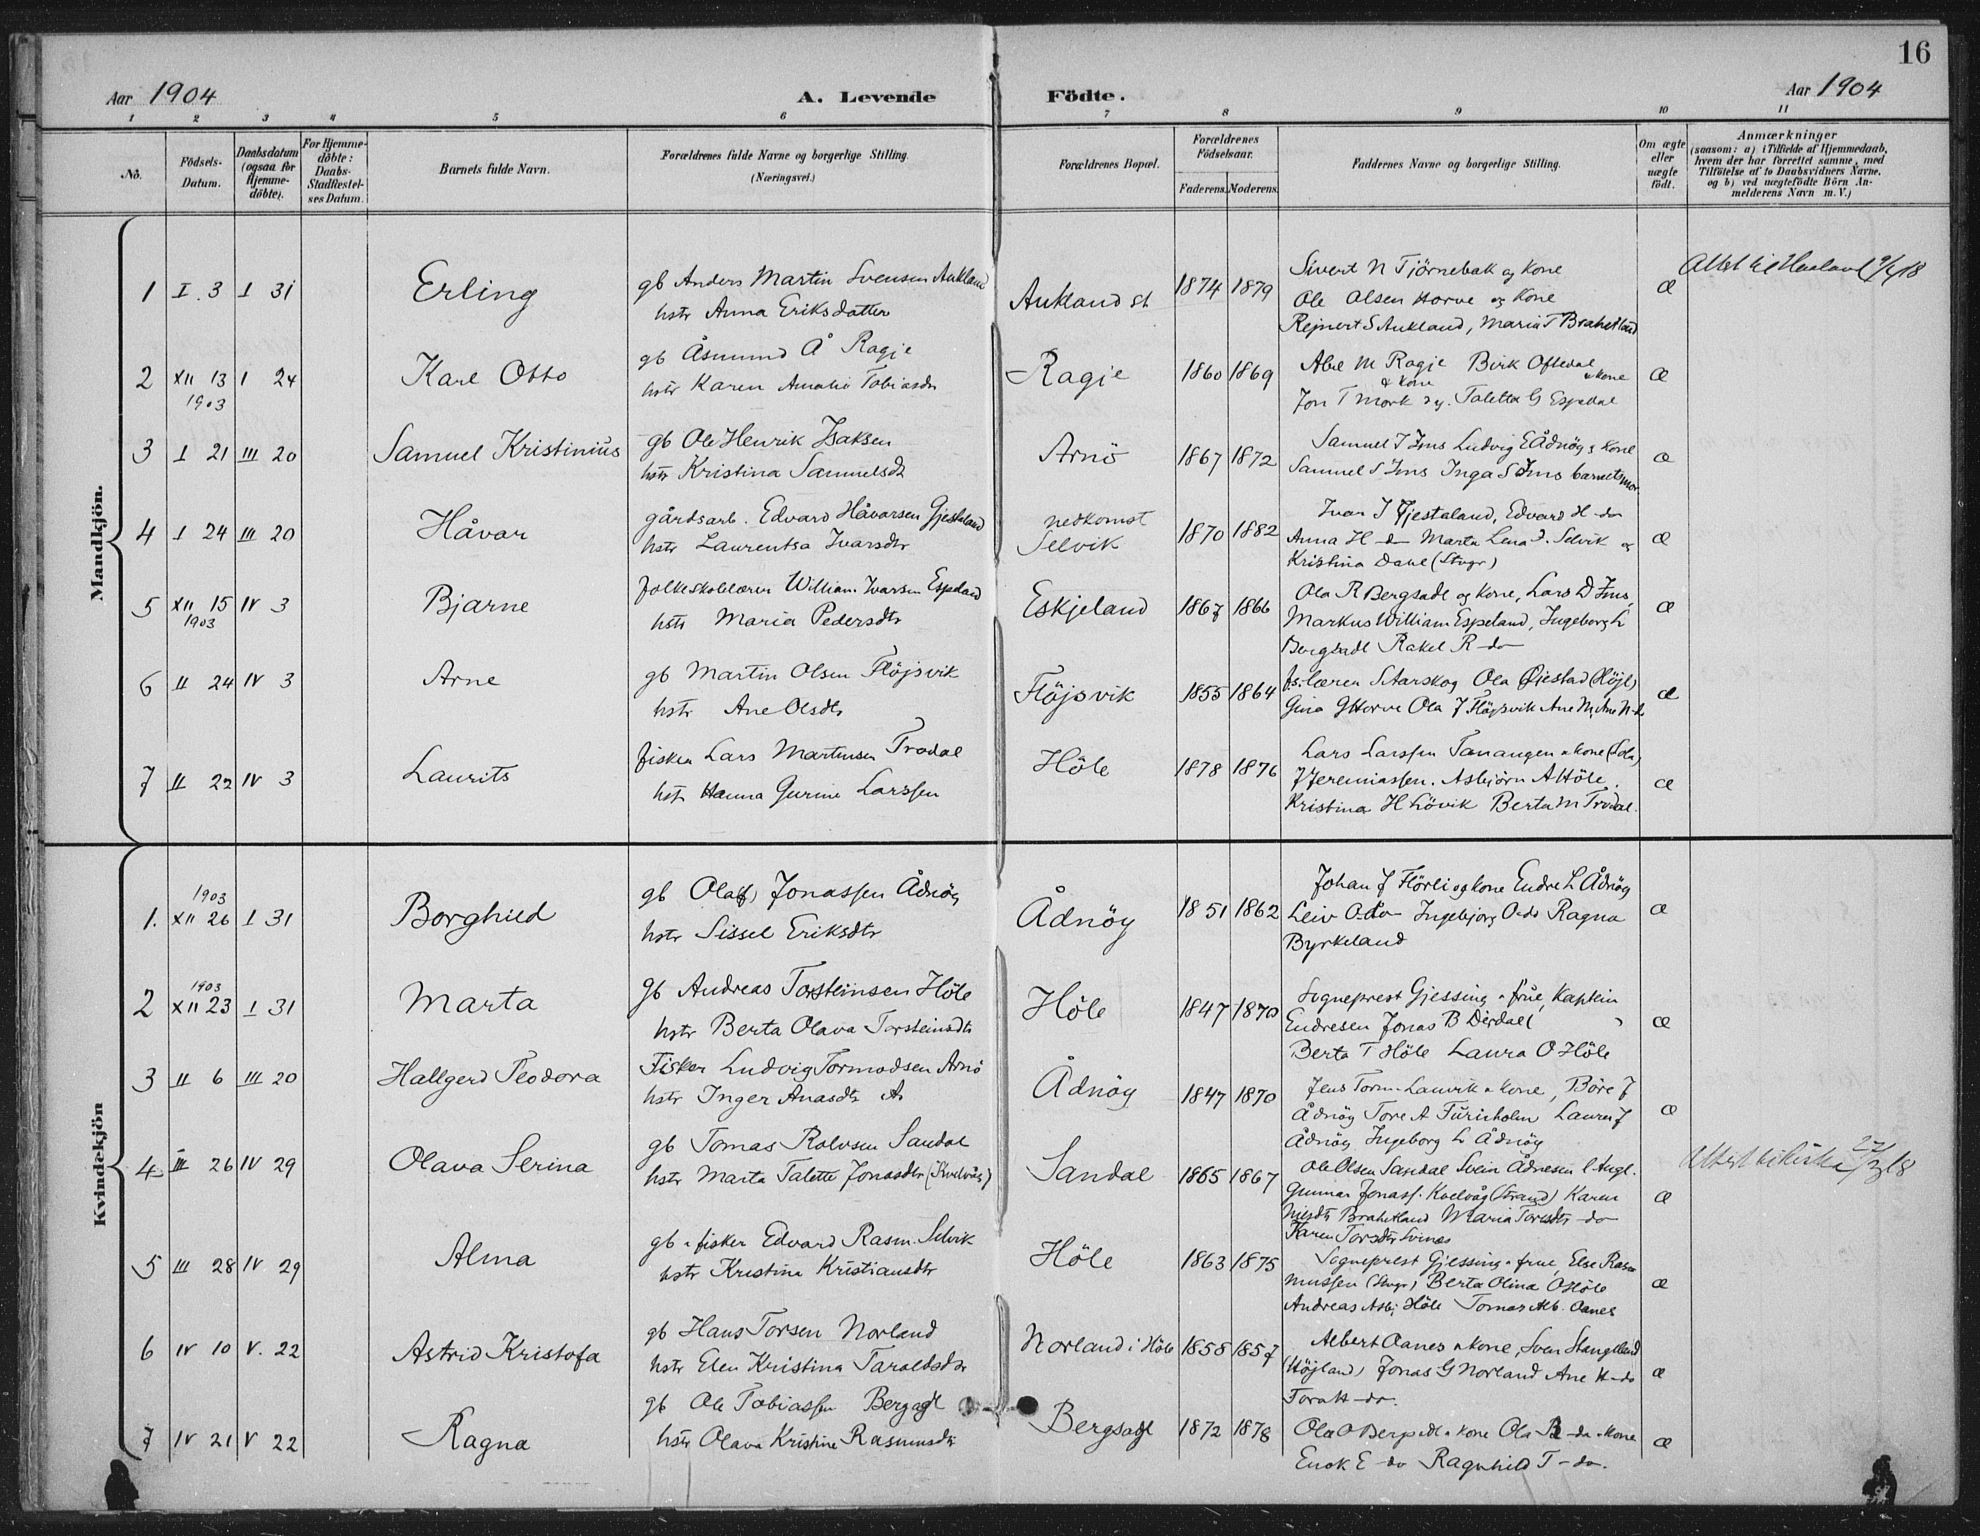 16
Aar 1904 A. Levende Födte. Aar 1904
1 2 3 4 5 6 7 8 9 10 11
No.
Födsels-Datum.
Daabsdatum (ogsaa for Hjemme-döbte).
For Hjemme-döbte: Daabs-Stadfestel-ses Datum.
Barnets fulde Navn.
Forældrenes fulde Navne og borgerlige Stilling. (Næringsvei.)
Forældrenes Bopæl.
Forældrenes Födselsaar.
Faderens. Moderens.
Faddernes Navne og borgerlige Stilling.
Om ægte eller uægte födt.
Anmærkninger
(saasom: a) i Tilfælde af Hjemmedaab,
hvem der har forrettet samme, med
Tilföielse af to Daabsvidners Navne,
og b) ved uægtefödte Börn An-
melderens Navn m. V.)
Mandkjön.
1 I. 3 I 31 Erling
gb Anders Martin Svensen Aukland
hstr Anna Eriksdatter
Aukland 1874 1879
Sivert N Tjörnebak og Kone
Ole Olsen Horve og Kone
Rejnert S Aukland, Maria T Brahetland
æ
2 XII 13 I 24 Karl Otto
1903
gb Åsmund Å Ragje
hstr Karen Amalie Tobiasdr
Ragje 1860 1869
Abel M Ragje Birk Oftedal & kone
& Kone
Jon T Mork Taletta G Espedal
æ
3 I 21 III 20 Samuel Kristinius
gb Ole Henrik Isaksen
hstr Kristina Samuelsdt
Arnö 1867 1872
Samuel T Ims Ludvig E Ådnög & Kone
Samuel S Ims Inga S Ims barnets mor
æ
4 I 24 III 20 Håvar
gårdsarb. Edvard Håvarsen Gjestaland
hstr Laurentsa Ivarsdtr
nedkomst
Selvik 1870 1882
Ivar I Gjestaland, Edvard H do
Anna H do Marta Lena I. Selvik og
Kristina Dahl (Stvgr)
æ
5 XII 15 IV 3 Bjarne
1903
folkeskolelærer William Ivarsen Espeland
hstr Maria Pedersdtr
Eskjeland 1867 1866
Ola R Bergsadl og Kone, Lars D Ims,
Markus William Espeland, Ingeborg L
Bergsadl Rakel R do
æ
6 II 24 IV 3 Arne
gb Martin Olsen Flöjsvik
hstr Ane Olsdtr
Flöjsvik 1855 1864
fs. lærer S Aarskog Ola Øiestad (Höjl)
Gina G Horve Ola J Flöjsvik Ane M, Ane N
æ
7 II 22 IV 3 Laurits
fisker Lars Martinsen Trodal
hstr Hanna Gurine Larssen
Höle 1878 1876
Lars Larssen Tanangen & kone (Sola)
J Jeremiassen. Asbjörn A Höle.
Kristina H Lövik Berta M Trodal.
æ
Kvindekjön
1903
1. XII 26 I 31 Borghild
gb Ola(f) Jonassen Ådnög
hstr Sissel Eriksdtr
Ådnög 1851 1862
Johan J Hörli og kone Endre L Ådnög
Leiv O do Ingebjörg O do Ragna
Byrkeland
æ
1903
2 XII 23 I 31 Marta
gb Andreas Torsteinsen Höle
hstr Berta Olava Torsteinsdtr
Höle 1847 1870
Sogneprest Gjessing & frue, Kaptein
Endresen Jonas B Dirdal
Berta T Höle Laura O Höle
æ
3 II 6 III 20 Hallgerd Teodora
Fisker Ludvig Tormodsen Arnö
hstr Inger Anasdtr
Ådnög 1847 1870
Jens Torm Lauvik & kone, Böre J
Ådnög Tore A Furuholm Laura J
Ådnög Ingeborg L Ådnög
æ
4 III 26 IV 29 Olava Serina
gb Tomas Rolvsen Sandal
hstr Marta Talette Jonasdtr (Kvelvåg)
Sandal 1865 1867
Ole Olsen Sandal Svein Ådnesen
Gunnar Jonass. Kvelvåg (Strand) Karen
Nilsdtr Brahetland Maria Torsdtr do
Karen Torsdtr Svines
æ
5 III 28 IV 29 Alma
gb & fisker Edvard Rasm. Selvik
hstr Kristina Kristiansdtr
Höle 1863 1875
Sogneprest Gjessing & frue Else Rasm
mussen (Stvgr) Berta Olina O Höle
Andreas Asbj Höle Tomas Alb. Oanes
æ
6 IV 10 V. 22 Astrid Kristofa
gb Hans Torsen Norland
hstr Elen Kristina Taraldsdtr
Norland i Höle 1858 1857
Albert Oanes & kone, Sven Stangeland
(Höjland) Jonas G Norland Ane H do
Tora H do.
æ
7 IV 21 V 22 Ragna
gb Ole Tobiassen Bergsagl
hstr Olava Kristine Rasmusdtr
Bergsagl 1872 1878
Ola O Bergsadl & kone Ola R do & kone
Enok E do Ragnhild T do.
æ